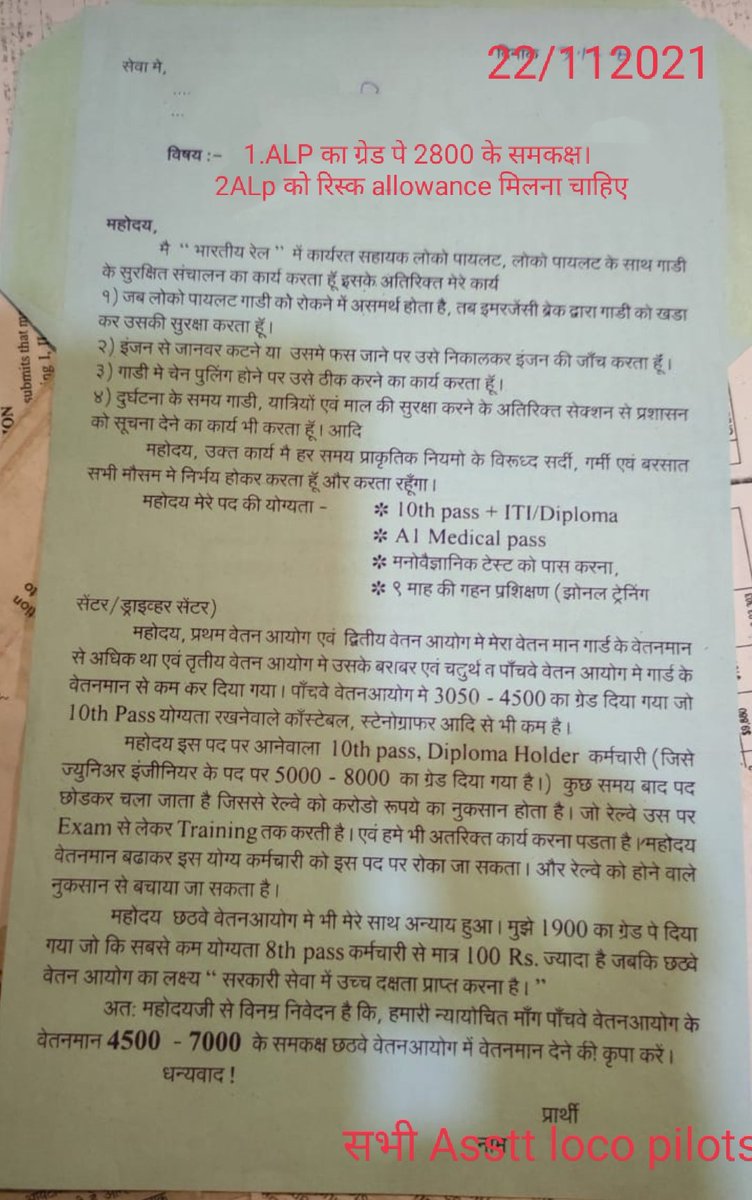 22/112021
सेवा मे,
....
...
विषय :- 1.ALP का ग्रेड पे 2800 के समकक्ष।
2ALp को रिस्क allowance मिलना चाहिए
महोदय,
मै “ भारतीय रेल ” में कार्यरत सहायक लोको पायलट, लोको पायलट के साथ गाडी
के सुरक्षित संचालन का कार्य करता हूँ इसके अतिरिक्त मेरे कार्य
१) जब लोको पायलट गाडी को रोकने में असमर्थ होता है, तब इमरजेंसी ब्रेक द्वारा गाडी को खडा
कर उसकी सुरक्षा करता हूँ।
२) इंजन से जानवर कटने या उसमे फस जाने पर उसे निकालकर इंजन की जाँच करता हूँ।
३) गाडी मे चेन पुलिंग होने पर उसे ठीक करने का कार्य करता हूँ।
४) दुर्घटना के समय गाडी, यात्रियों एवं माल की सुरक्षा करने के अतिरिक्त सेक्शन से प्रशासन
को सूचना देने का कार्य भी करता हूँ। आदि
महोदय, उक्त कार्य मै हर समय प्राकृतिक नियमो के विरूध्द सर्दी, गर्मी एवं बरसात
सभी मौसम मे निर्भय होकर करता हूँ और करता रहूँगा।
महोदय मेरे पद की योग्यता - ✻ 10th pass + ITI/Diploma
✻ A1 Medical pass
✻ मनोवैज्ञानिक टेस्ट को पास करना,
✻ ९ माह की गहन प्रशिक्षण (झोनल ट्रेनिंग
सेंटर/ड्राइव्हर सेंटर)
महोदय, प्रथम वेतन आयोग एवं द्वितीय वेतन आयोग मे मेरा वेतन मान गार्ड के वेतनमान
से अधिक था एवं तृतीय वेतन आयोग मे उसके बराबर एवं चतुर्थ व पाँचवे वेतन आयोग मे गार्ड के
वेतनमान से कम कर दिया गया। पाँचवे वेतनआयोग मे 3050 - 4500 का ग्रेड दिया गया जो
10th Pass योग्यता रखनेवाले काँस्टेबल, स्टेनोग्राफर आदि से भी कम है।
महोदय इस पद पर आनेवाला 10th pass, Diploma Holder कर्मचारी (जिसे
ज्युनिअर इंजीनियर के पद पर 5000 - 8000 का ग्रेड दिया गया है।) कुछ समय बाद पद
छोडकर चला जाता है जिससे रेल्वे को करोडो रूपये का नुकसान होता है। जो रेल्वे उस पर
Exam से लेकर Training तक करती है। एवं हमे भी अतरिक्त कार्य करना पडता है। महोदय
वेतनमान बढाकर इस योग्य कर्मचारी को इस पद पर रोका जा सकता। और रेल्वे को होने वाले
नुकसान से बचाया जा सकता है।
महोदय छठवे वेतनआयोग मे भी मेरे साथ अन्याय हुआ। मुझे 1900 का ग्रेड पे दिया
गया जो कि सबसे कम योग्यता 8th pass कर्मचारी से मात्र 100 Rs. ज्यादा है जबकि छठवे
वेतन आयोग का लक्ष्य “ सरकारी सेवा में उच्च दक्षता प्राप्त करना है। ”
अत: महोदयजी से विनम्र निवेदन है कि, हमारी न्यायोचित माँग पाँचवे वेतनआयोग के
वेतनमान 4500 - 7000 के समकक्ष छठवे वेतनआयोग में वेतनमान देने की कृपा करें।
धन्यवाद !
प्रार्थी
नाम
सभी Asstt loco pilots
submits that